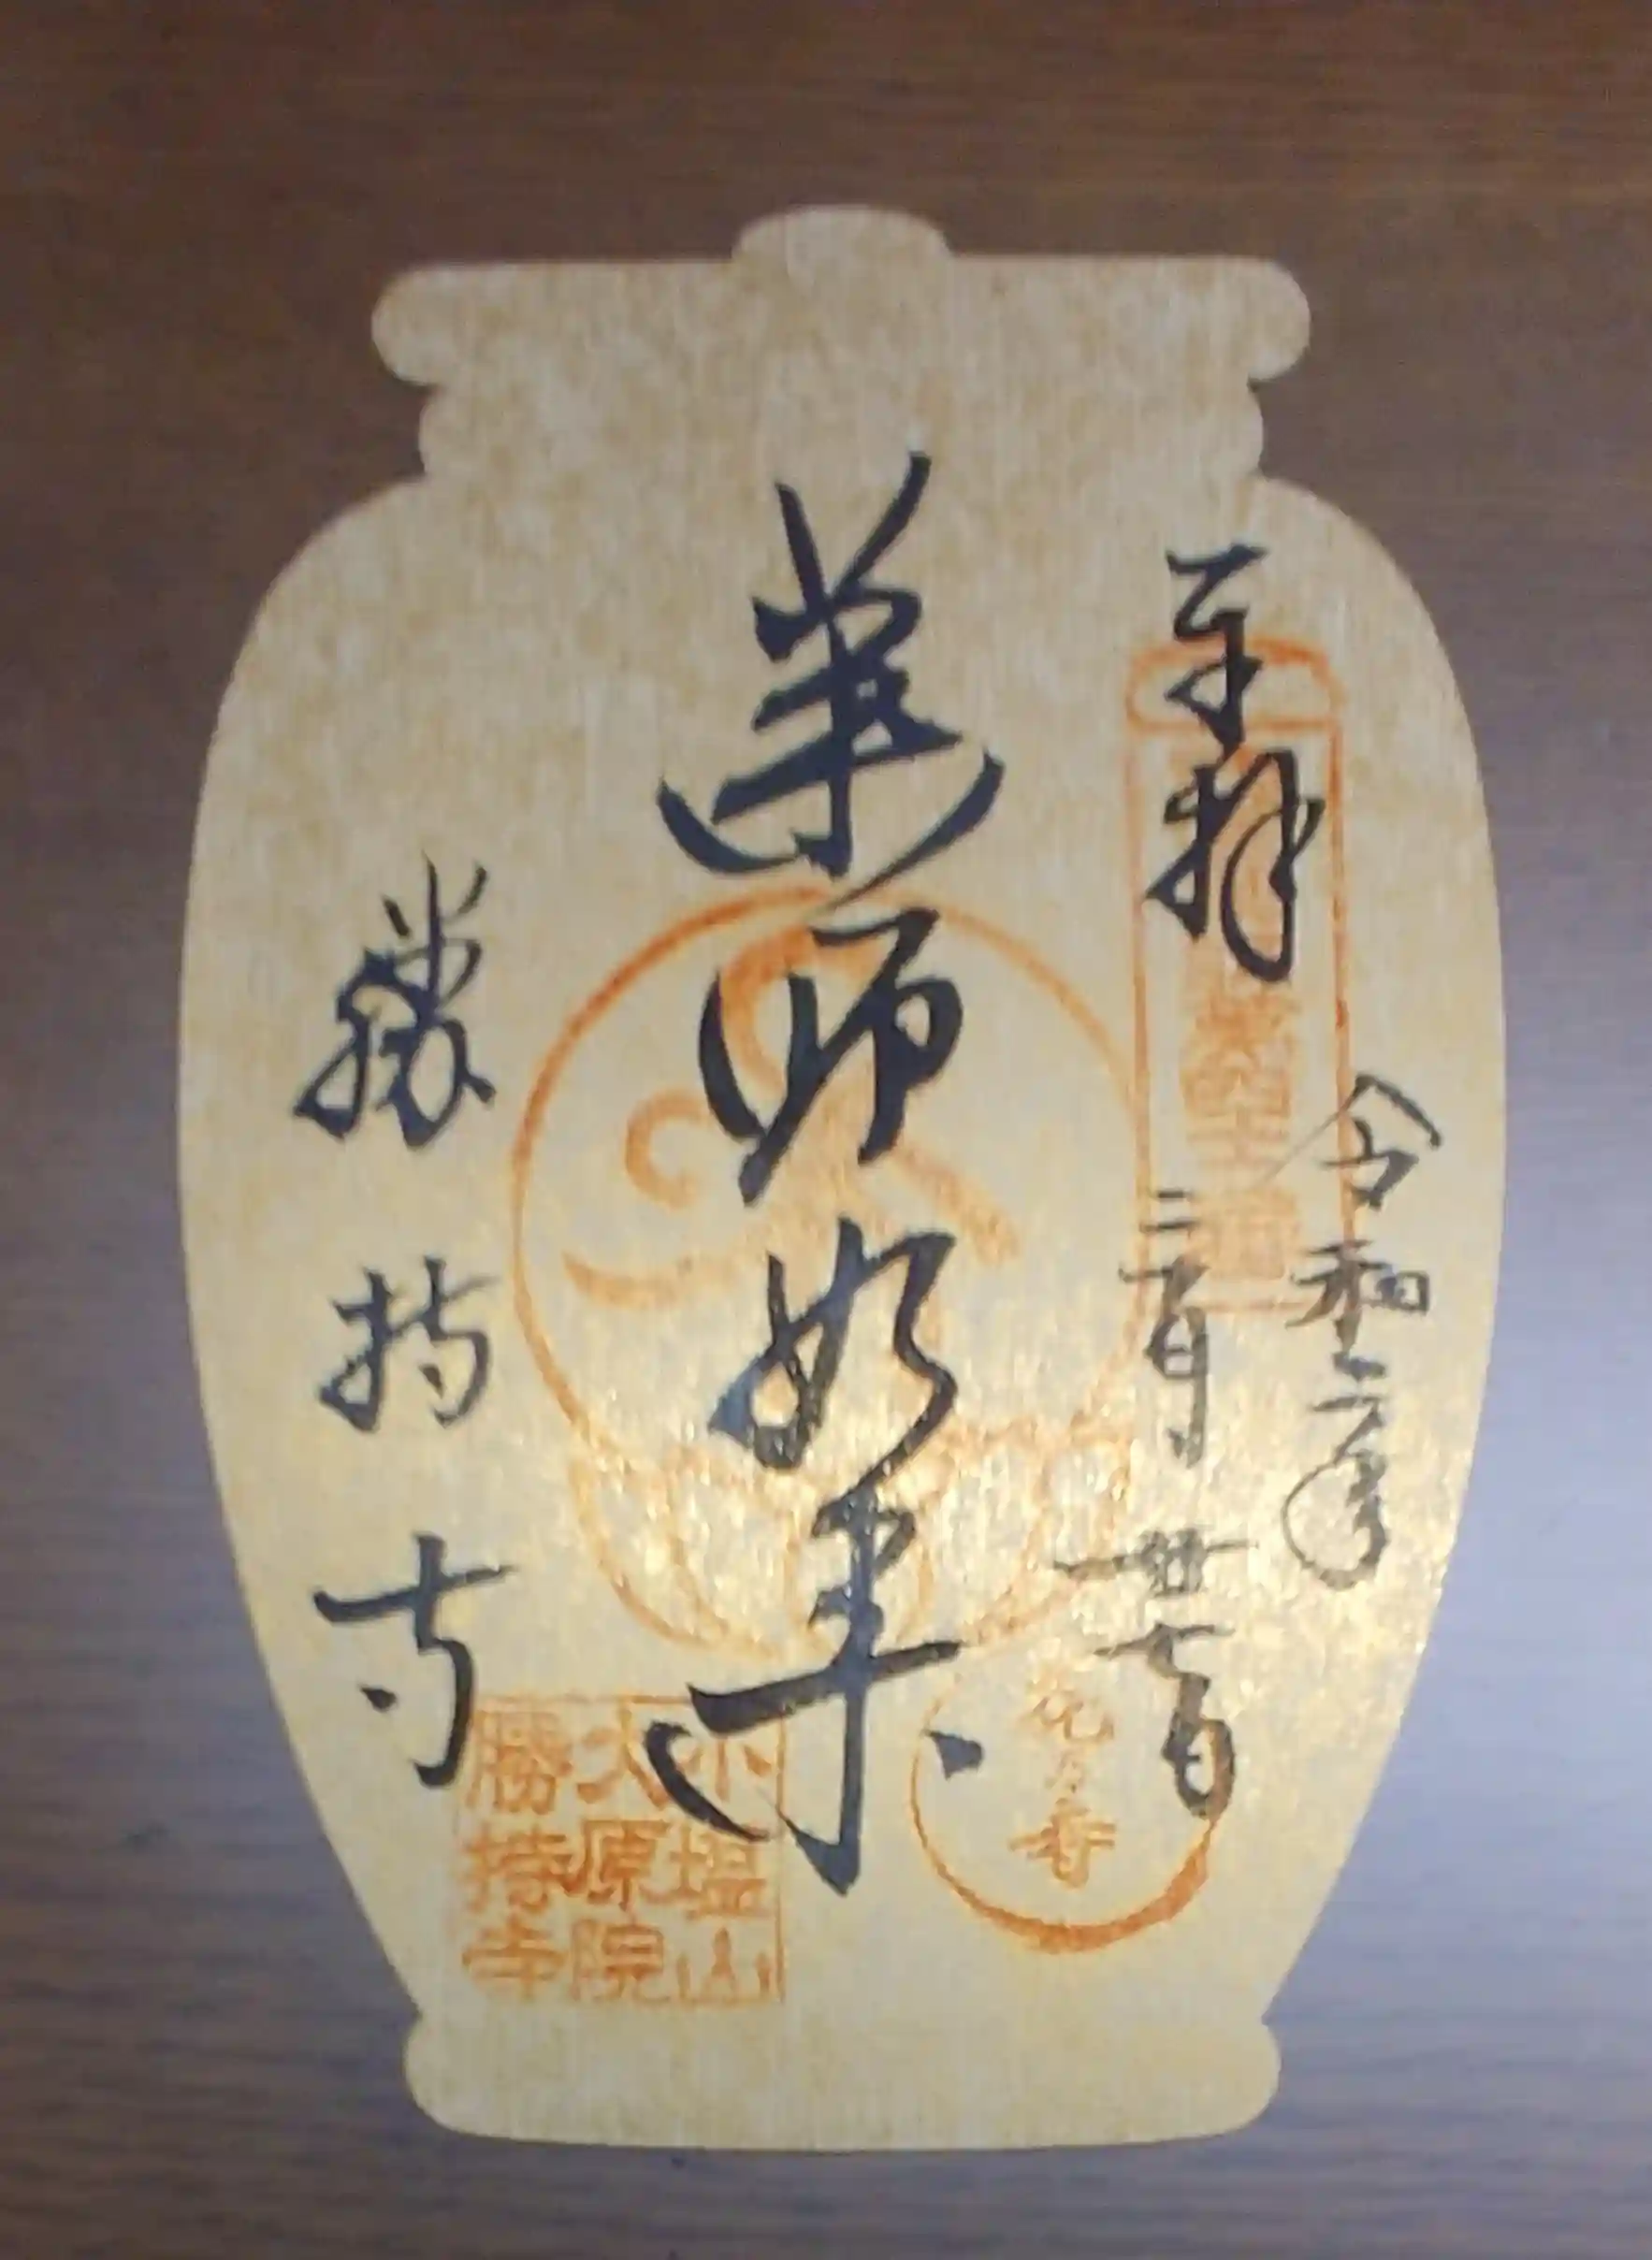 奉拝
令和六年
二月廿七日
薬師如来
勝持寺
花の寺
小塩山
大原院
勝持寺